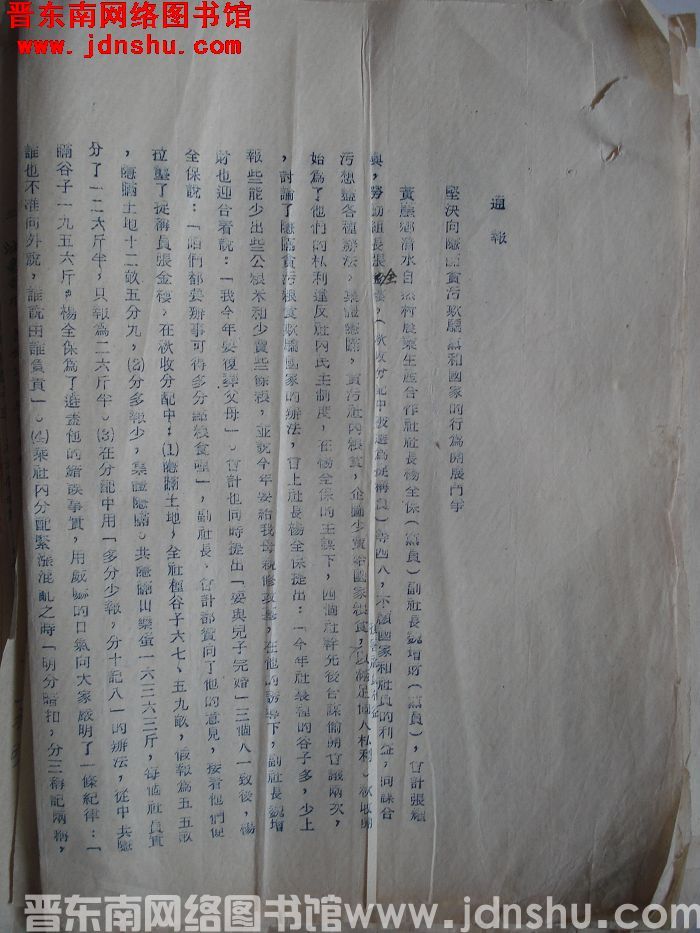 晋东南网络图书馆
www.jdnshu.com
通報
堅決向隱瞞貪污欺騙黨和國家的行為開展鬥爭
黃碾鄉清水自然村農業生產合作社社長楊全保(黨員)副社長魏增財(黨員),會計張
與,勞動組長張全樓,(秋收分配中被選為掟稱員)等四人,不顧國家和社員的利益,同謀合
污想盡各種辦法,集體隱瞞,貪污社內糧食,企圖少賣給國家糧食,以滿足個人私利。秋收開
始為了他們的私利違反社內民主制度,在楊全保的主謀下,四個社幹先後合謀偷開會議兩次,
,討論了隱瞞貪污糧食欺騙國家的辦法,會上社長楊全保提出:「今年社裏種的谷子多,少上
報些能少出些公糧米和少賣些餘糧,並說今年要給我母親修坟墓,在他的誘導下,副社長魏增
財也迎合着說:「我今年要復葬父母」。會計也同時提出「要與兒子完婚」三個人一致後,楊
全保說:「咱們都要辦事可得多分點糧食哩」,副社長、會計都贊同了他的意見,接着他們便
拉攏了掟稱員張金樓。在秋收分配中:(1)隱瞞土地,全社種谷子六七、五九畝,假報為五五畝
,隱瞞土地十二畝五分九,(2)分多報少,集體隱瞞。共隱瞞山藥蛋一六三六三斤,每個社員實
分了一二六斤半,只報為二六斤半。(3)在分配中用「多分少報,分十記八」的辦法,從中共隱
瞞谷子一九五六斤。楊全保為了遮盖他的錯誤事實,用威嚇的口氣向大家嚴明了一條紀律:「
誰也不准向外說,誰說出誰負責」。(4)乘社內分配緊漲混亂之時「明分暗扣,分三稱記兩稱,
晋东南网络图书馆 www.jdnshu.com